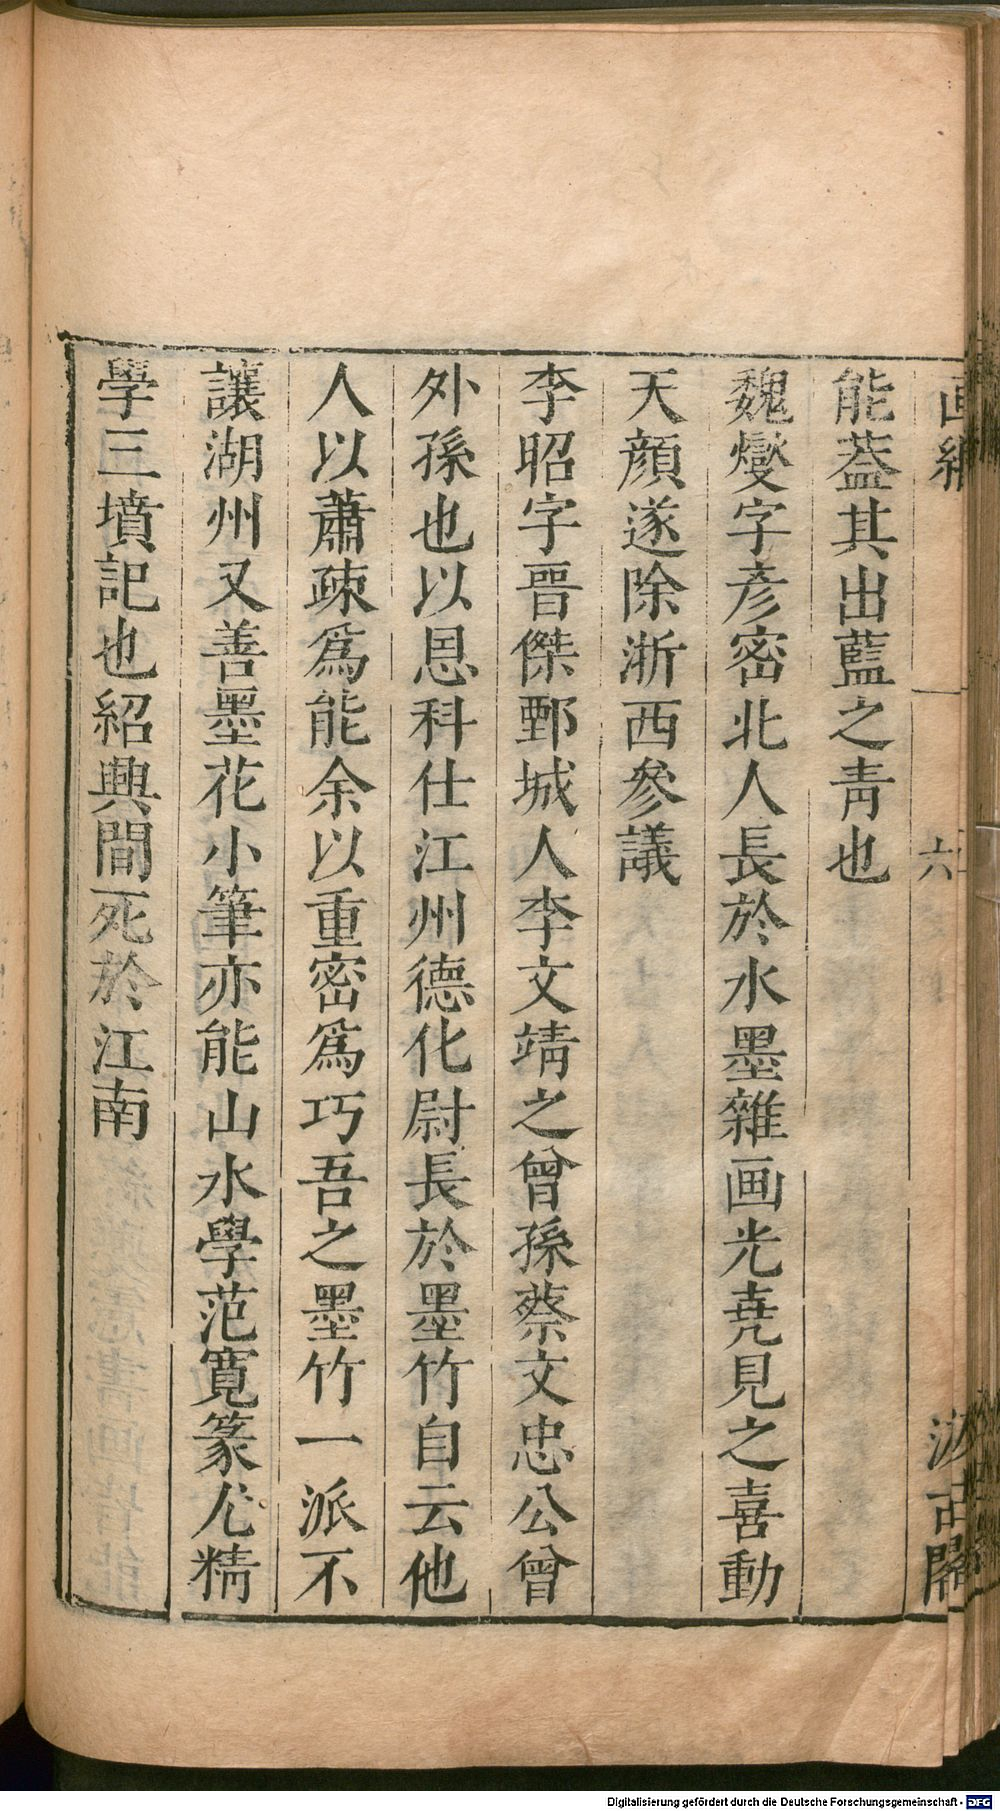 六
汲古閣
能葢其出藍之靑也
魏燮字彥密北人長於水墨雜画光堯見之喜動
天顔遂除浙西參議
李昭字晉傑鄄城人李文靖之曾孫蔡文忠公曾
外孫也以恩科仕江州德化尉長於墨竹自云他
人以蕭疎爲能余以重密爲巧吾之墨竹一派不
讓湖州又善墨花小筆亦能山水學范寬篆尤精
學三墳記也紹興間死於江南
Digitalisierung gefördert durch die Deutsche Forschungsgemeinschaft - DFG